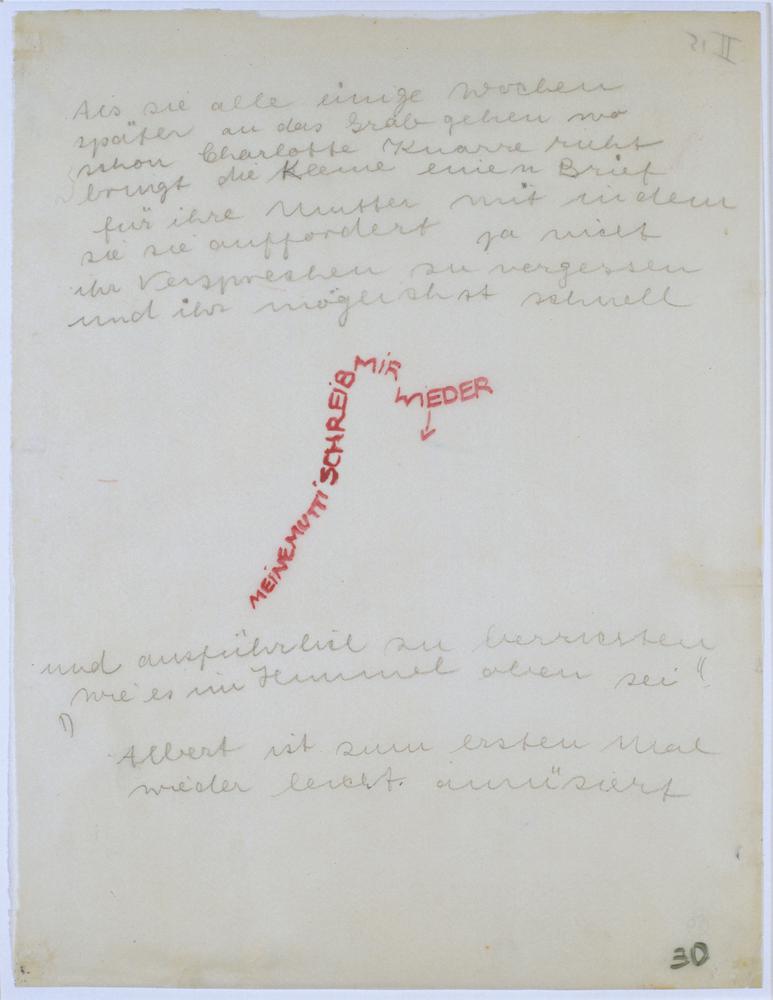 II 15
Als sie alle einige Wochen
später an das Grab gehen wo
schon Charlotte Knarre ruht
bringt die Kleine einen Brief
für ihre Mutter mit in dem
sie sie auffordert ja nicht
ihr Versprechen zu vergessen
und ihr möglichst schnell
MEINE MUTTI SCHREIB MIR WIEDER
und ausführlich zu berichten
wie es im Himmel oben sei“.
Albert ist zum ersten Mal
wieder leicht amüsiert
30